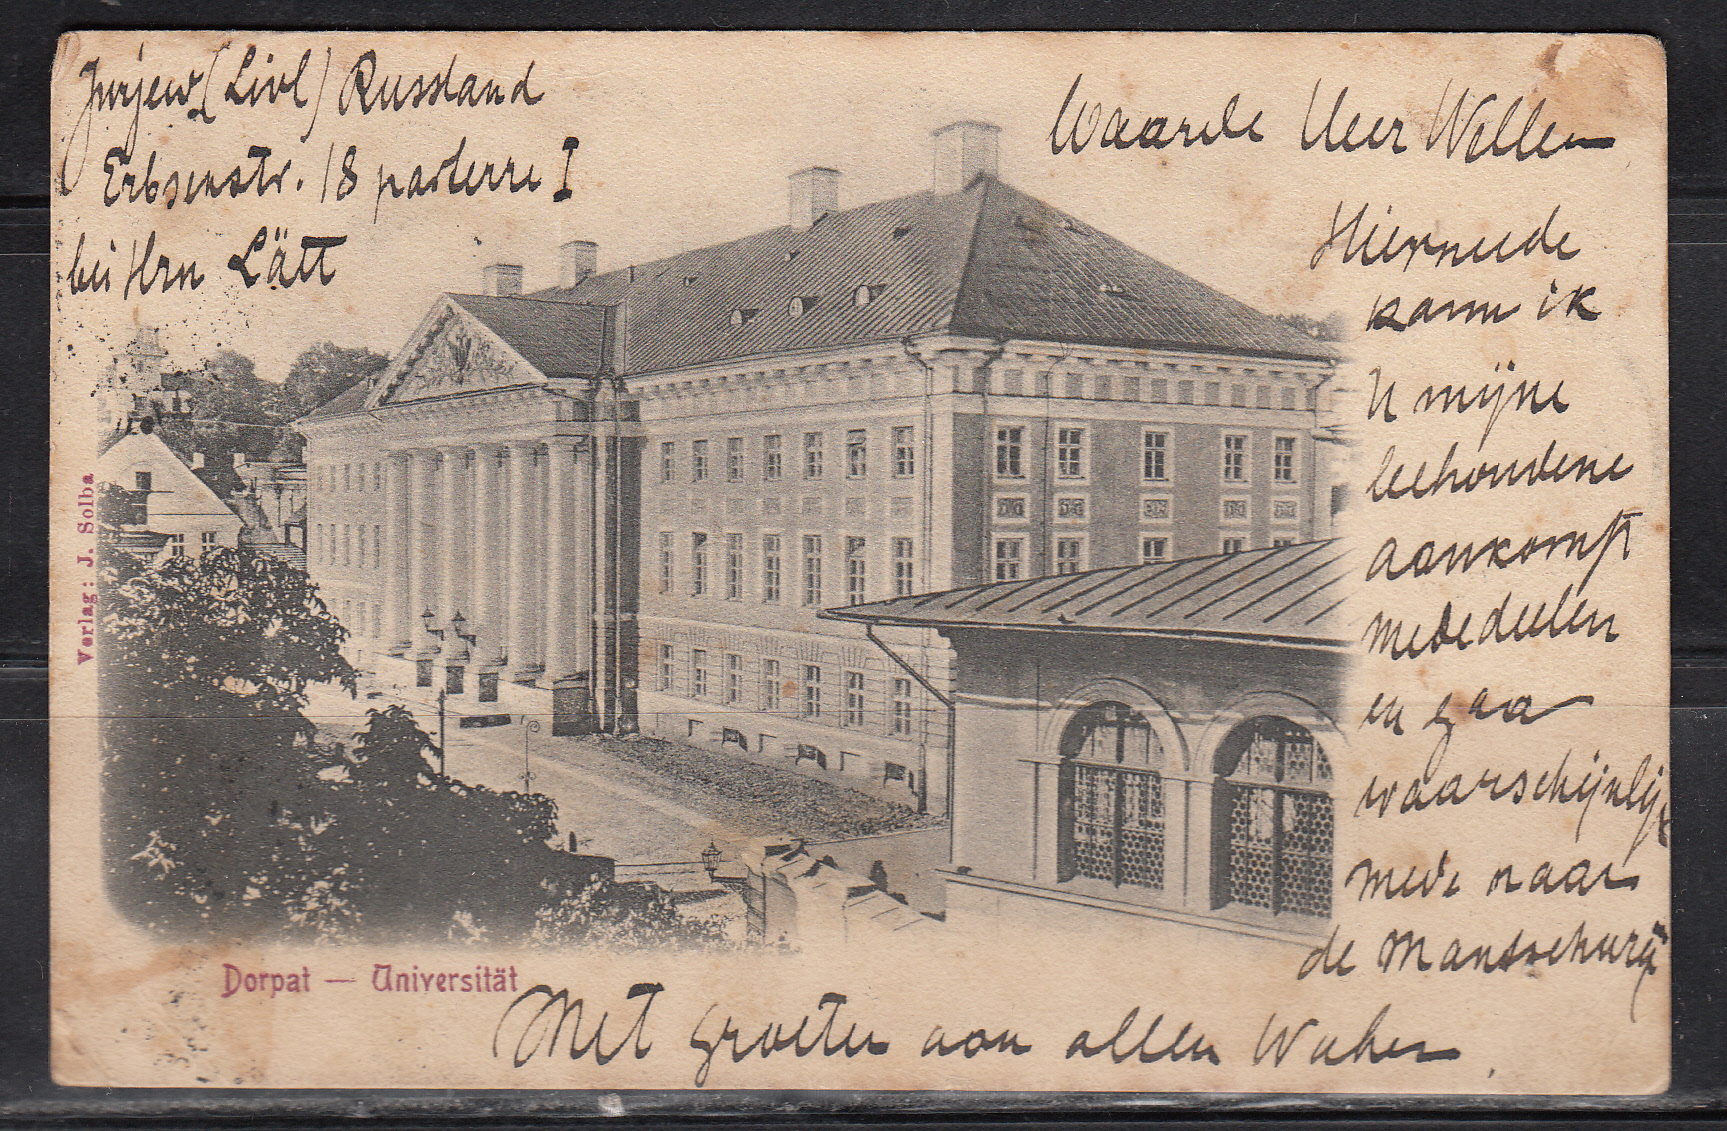 Jurjew (Livl) Russland
Erbsenstr. 18 parterre I
bei Hrn Lätt
Waarde Heer Wellen
Hiermede
kann ik
U mijne
behoudene
aankomst
mededeelen
en gaa
waarschijnlijk
mede naar
de Mantschurij
Met groeten aan allen
Verlag: J. Solba
Dorpat — Universität